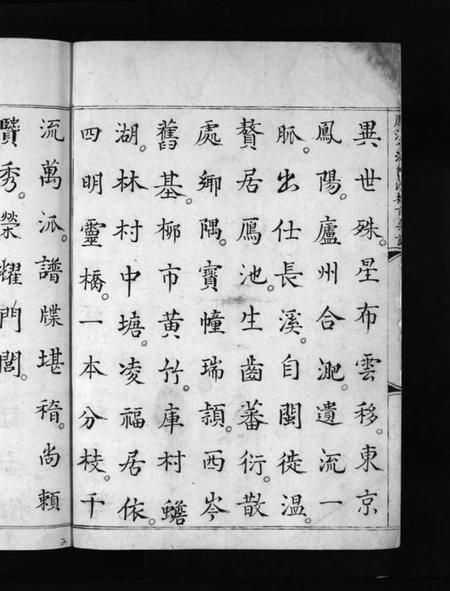 異世殊。星布雲移。東京
鳳陽。廬州合淝。遺流一
脈。出仕長溪。自閩徙溫。
贅居鴈池。生齒蕃衍。散
處鄉隅。寶幢瑞頴。西岑
舊基。栁市黄竹。庫村蟾
湖。林村中塘。凌福居依。
四明靈橋。一本分枝。千
流萬派。譜牒堪稽。尚賴
賢秀。榮耀門閭。
2